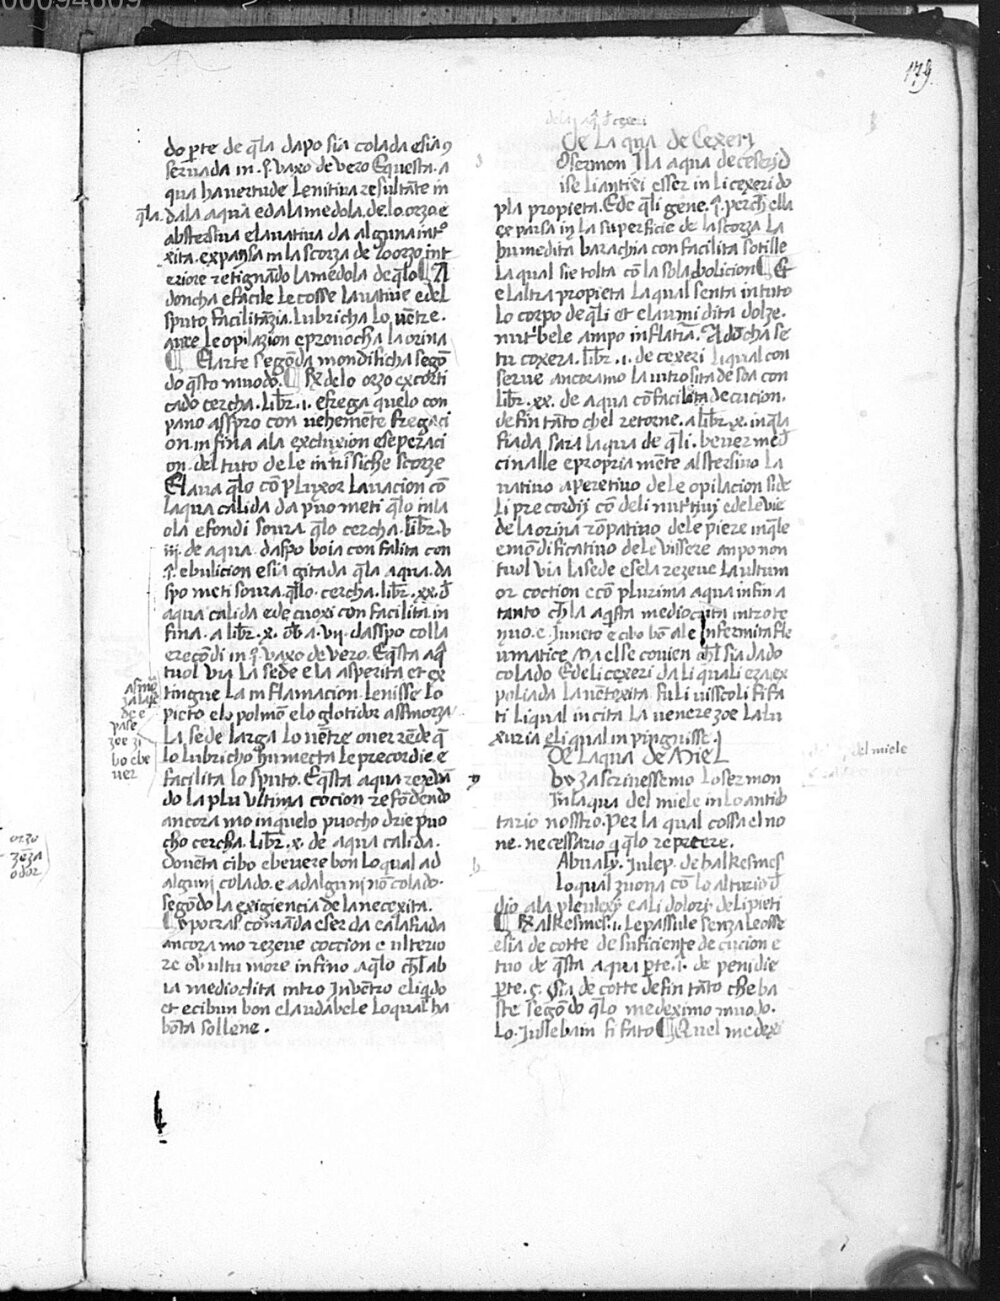 00094609
179
do pte de q̄la dapo sia colada e sia 9
seruada in .i. vaxo de vero E questa a
qua ha vertude lenitiua resultāte in
q̄la. dala aqua e da la medola. de. lo. orzo e
abstersiua e lauatiua da alguna int̄o
xita. expansa in la scorza de lo orzo int
eriore restignādo la medola de q̄lo ¶ A
doncha e facile le cosse lauatiue e del
sputo facilitazia. lubricha lo vētre.
apre le opilazion e prouocha la orina
¶ E larte segōda mondificha segō
do q̄sto muodo. ¶ R̄ de lo orzo excorti
cado cercha. libr̄. i. e frega quelo con
pano asspro con uehemēte fregaci
on in fina ala excluxion e seperaci
on. del tuto de le intrīsiche scorze
E laua q̄lo cō pluxor lauacion cō
laqua calida da puo meti q̄lo in la
ola e fondi soura q̄lo cercha. libr̄. v
iii. de aqua. daspo boia con falita con
.i. ebulicion e sia gitada q̄la aqua. da
spo meti soura. q̄lo. cercha. libr̄. xx. d̄
aqua calida e de cuoxi con facilita in
fina. a libr̄. x. ob̄ a. vii. dasspo colla
e recōdi in .i. vaxo de vero. E q̄sta aq̄
tuol via la sede e la asperita et ex
tingue la inflamacion. lenisse lo
picto e lo polmō e lo glotidor assmorza
la sede larga lo vētre ouer rēde q̄
lo lubricho humecta le precordie. e
facilita lo sputo. E q̄sta aqua rezeuā
do la plu ultima cocion refōdendo
ancora mo in quelo puocho drie puo
cho cercha. libr̄. x. de aqua calida.
douēta cibo e beuere bon lo qual ad
algunj colado. e ad algunj nō colado.
segōdo la exigiencia de la necexita.
¶ ypocras comāda eser da ea la fiada
ancora mo rezeue coccion e ulterio
re ob̄ ultimore in fino a q̄lo ch̄l ab
ia mediocita intro Inuentro e liq̄do
et e cibum bon e laudabele lo qual ha
bōta sollene.
asmo
za la
de e
pase
zoe
bo e be
uer
orzo
odor
dela aq̄ d̄ cexeri
De La qua de Cexeri
O sermon I la aqua de ceseri d
ise li antixi esser in li cexeri do
pla propieta. E de q̄li gene. i. perch̄ ella
ex parsa in la superficie de la scorza la
humedita barachia con facilita sotille
la qual sie tolta cō la sola ebolicion ¶ Et
e laltra propieta la qual senta in tuto
lo corpo de q̄li et e laumidita dolze.
nut̄bele ampo inflatīa. Adōcha se
tu coxera. libr̄. i. de cexeri li qual con
serue ancoramo la uirosita de soa con
libr̄. xx. de aqua cō facilita de cucion.
de fin tāto chel retorne. a libr̄. x. in q̄la
fiada sara laqua de q̄li. beuer med̄
cinalle e propriamēte alstersiuo la
uatiuo aperetiuo de le opilacion side
li precordij cō deli nut̄tiuj e de le vie
de la orina rōpatiuo de le piere in q̄le
e mōdificatiuo de le vissere ampo non
tuol via la sede e se la rezeue la ultim
or coction e cō plurima aqua infin a
tanto ch̄ la aq̄sta mediocita intro te
nuo. e Juneto e cibo bō a le Infermita fle
umatice ma else conien ch̄l sia dado
colado E de li cexeri da li quali era ex
poliada la uētoxita fi li uisscoli fi fa
ti li qual incita la venere zoe la lu
xuria e li qual in pingnisse.
De Laqua de Miel
b za scrinessemo lo sermon
In laqua del miele in lo antid
tario nosstro. per la qual cossa el no
ne. necessario q̄ q̄lo repetere.
del miele
b Abualy. Julep. de halkesmes
lo qual zuoua cō lo alturio d̄
dio ala pleulexy e ali dolori. de li pieti
¶ R̄ alkesmes. i. le passule senza le osse
e sia de cotte de suficiente de cucion e
tuo de q̄sta aqua pte. i. de penidie
pte. ς. sia de cotte de fin tāto che ba
ste segōdo q̄lo medeximo muodo.
lo. Jussebain fi fato ¶ Quel medexi